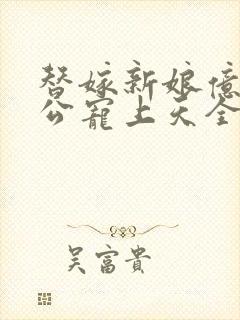 替嫁新娘億
公寵上天全
吴富貴